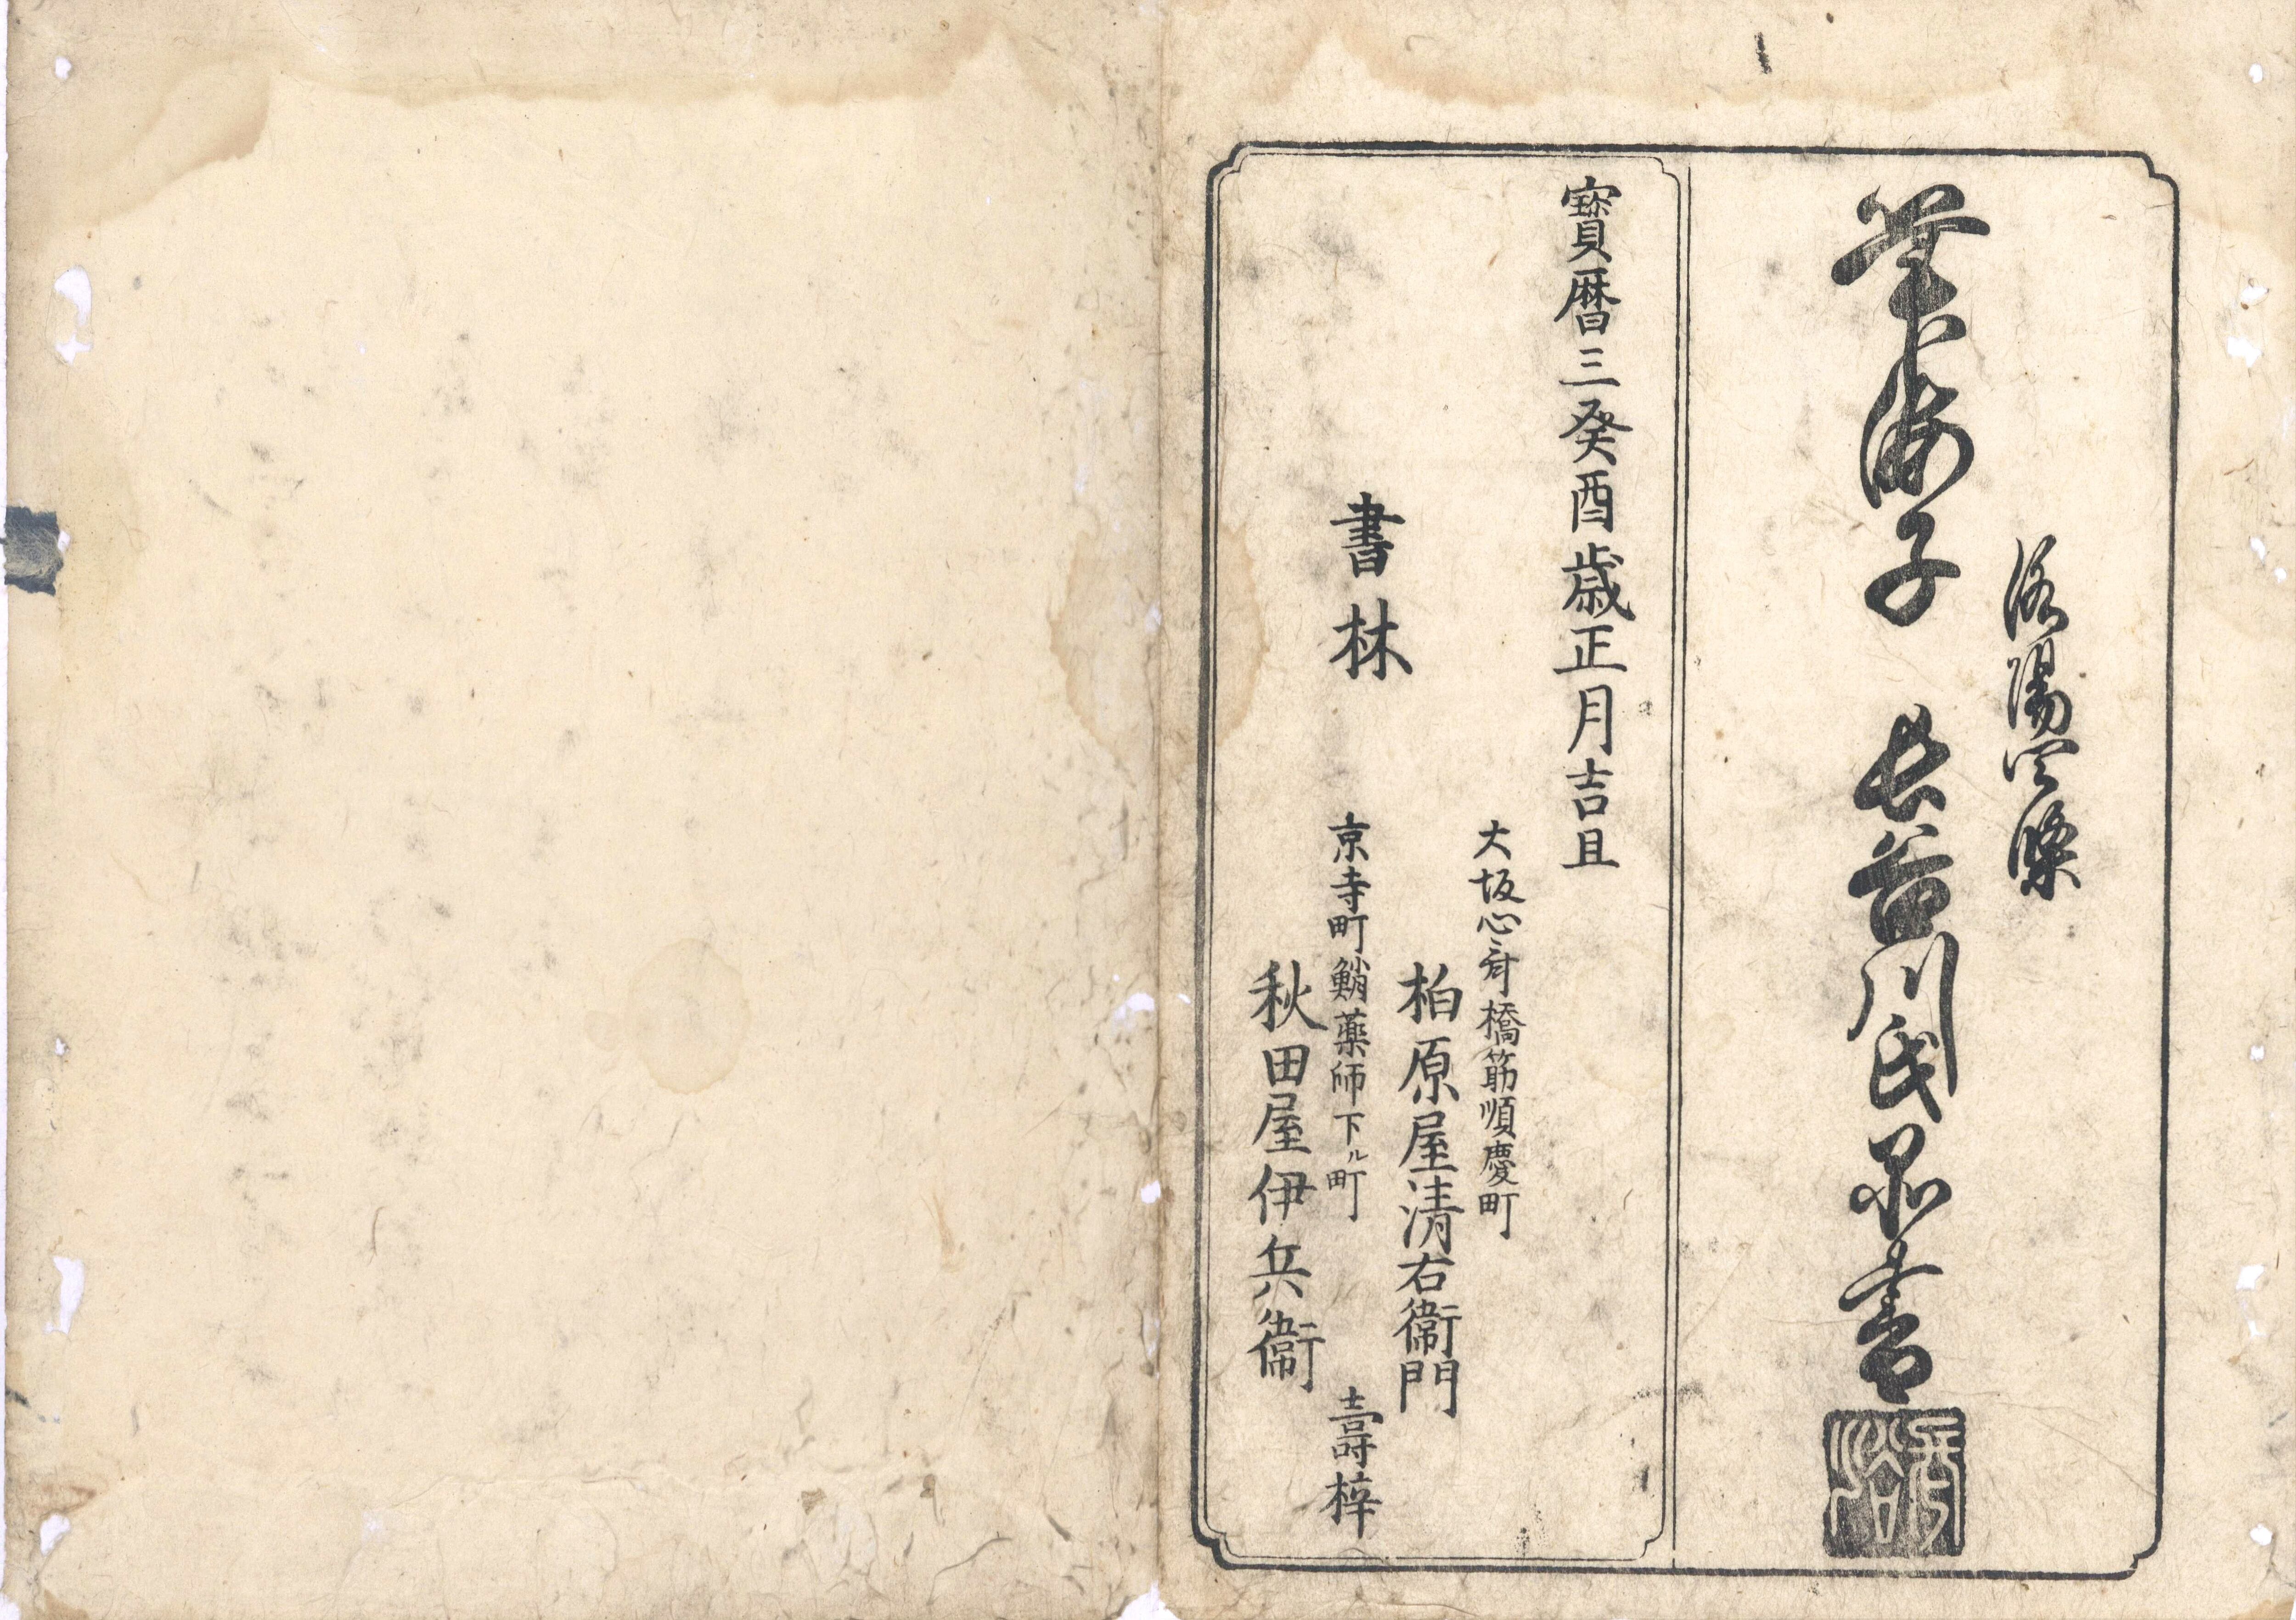 洛陽四條
筆海子 長谷川氏品書
寳暦三癸酉歳正月吉且
書林
大坂心斉橋筋順慶町
柏原屋清右衛門
京寺町鮹薬師下ル町
秋田屋伊兵衛
壽梓